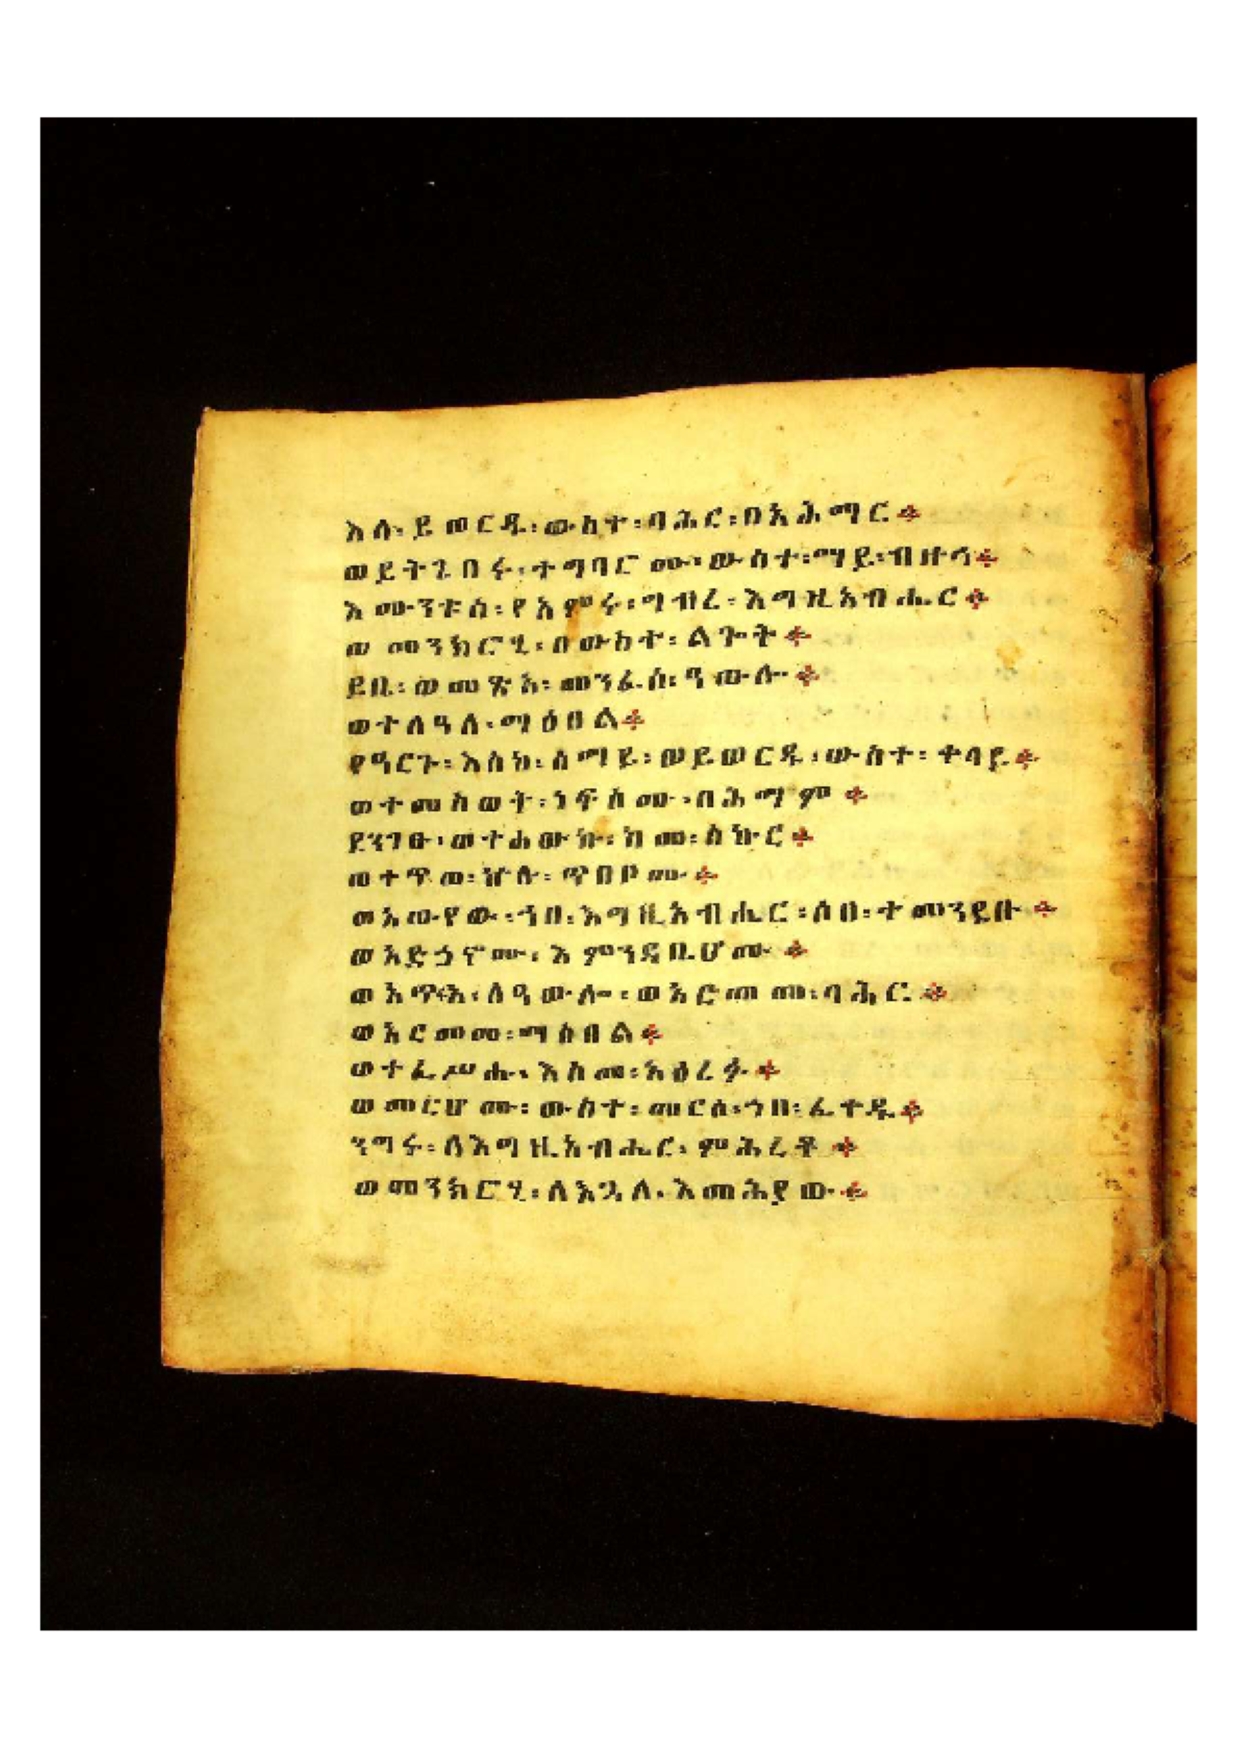 እለ፡ይወርዱ፡ውስተ፡ባሕር፡በአሕማር፨
ወይትጌበሩ፡ተግባሮሙ፡ውስተ፡ማይ፡ብዙኅ፨
እሙንቱሰ፡የአምሩ፡ግብረ፡እግዚአብሔር፨
ወመንክሮሂ፡በውስተ፡ልጐት፨
ይቤ፡ወመጽአ፡መንፈሰ፡ዓውሎ፨
ወተለዓለ፡ማዕበል፨
የዓርጉ፡እስከ፡ሰማይ፡ወይወርዱ፡ውስተ፡ቀላይ፨
ወተመስወት፡ነፍሶሙ፡በሕማም፨
ደንገፁ፡ወተሐውኩ፡ከመ፡ስኩር፨
ወተኀጥአ፡ኵሉ፡ጥበቦሙ፨
ወአውየው፡ኀበ፡እግዚአብሔር፡ሶበ፡ተመንደቡ፨
ወአድኃኖሙ፡እምንዳቤሆሙ፨
ወአጥፍአ፡ለዓውሎ፡ወአርመመ፡ባሕር፨
ወአርመመ፡ማዕበል፨
ወተፈሥሑ፡እስመ፡አዕረፉ፨
ወመርሆሙ፡ውስተ፡መርሶ፡ኀበ፡ፈተዱ፨
ንግሩ፡ለእግዚአብሔር፡ምሕረቶ፨
ወመንክሮሂ፡ለእጓለ፡እመሕያው፨